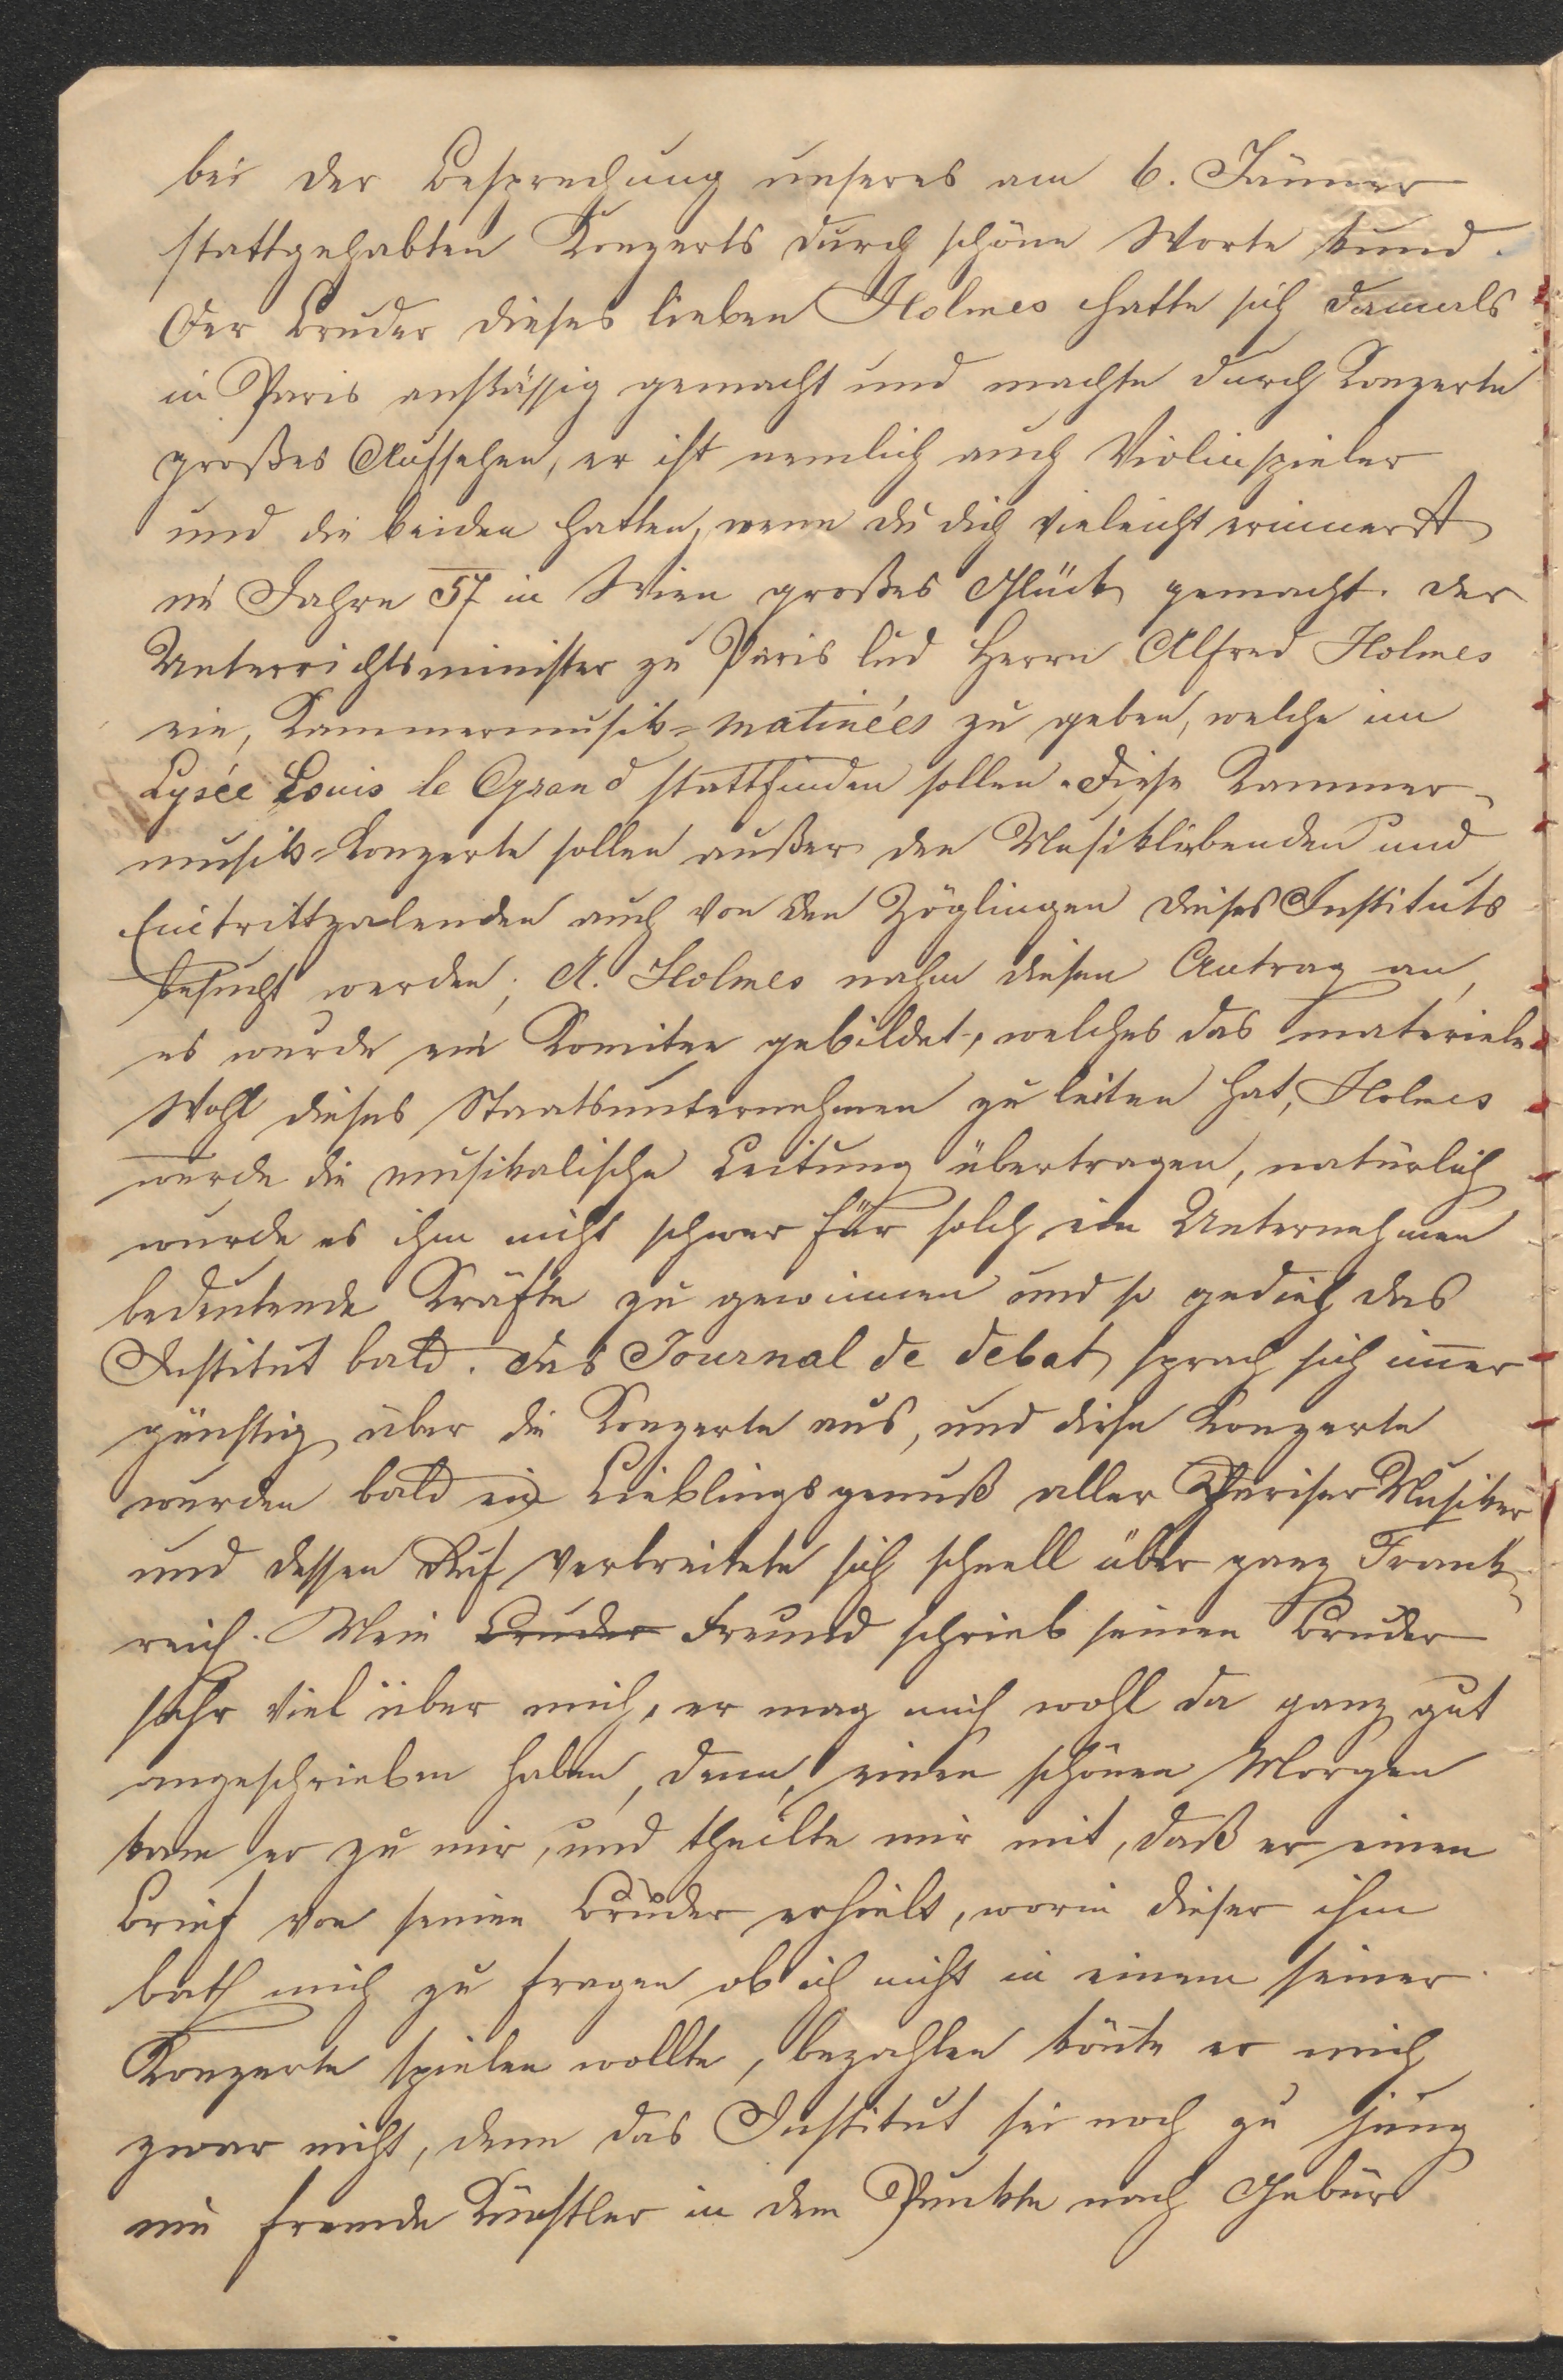 bei der Besprechung unseres am 6. Jänner
stattgehabten Konzerts durch schöne Worte kund.
Der Bruder dieses lieben Holmes hatte sich damals
in Paris ansässig gemacht und machte durch Konzerte
großes Aufsehen, er ist nemlich auch Violinspieler
und die beiden hatten, wenn du dich vieleicht erinnerst
im Jahre 57 in Wien großes Glück gemacht. der
Unterrichtsminister zu Paris lud Herrn Alfred Holmes
ein, Kammermusik=matinées zu geben, welche im
Lysée Louis le Grand stattfinden sollen. Diese Kammer-
musik=Konzerte sollen außer den Musikliebenden und
Eintrittzalenden auch von den Zöglingen dieses Instituts
besucht werden; A. Holmes nahm diesen Antrag an,
es wurde ein Komitee gebildet, welches das materiele
Wohl dieses Staatsunternehmen zu leiten hat, Holmes
wurde die musikalische Leitung übertragen, natürlich
wurde es ihm nicht schwer für solch ein Unternehmen
bedeutende Kräfte zu gewinnen und so gedieh das
Institut bald. Das Journal de debat sprach sich im̄er
günstig über die Konzerte aus, und diese Konzerte
wurden bald ein Lieblingsgenuß aller Pariser Musiker
und dessen Ruf verbreitete sich schnell über ganz Frank-
reich. Mein Bruder Freund schrieb seinen Bruder
sehr viel über mich, er mag mich wohl da ganz gut
angeschrieben haben, denn, einen schönen Morgen
kam er zu mir, und theilte mir mit, daß er einen
Brief von seinen Bruder erhielt, worin dieser ihm
bath mich zu fragen ob ich nicht in einem seiner
Konzerte spielen wollte, bezahlen kön̄te er mich
zwar nicht, denn das Institut sei noch zu jung
um fremde Künstler in dem Punkte nach Gebür